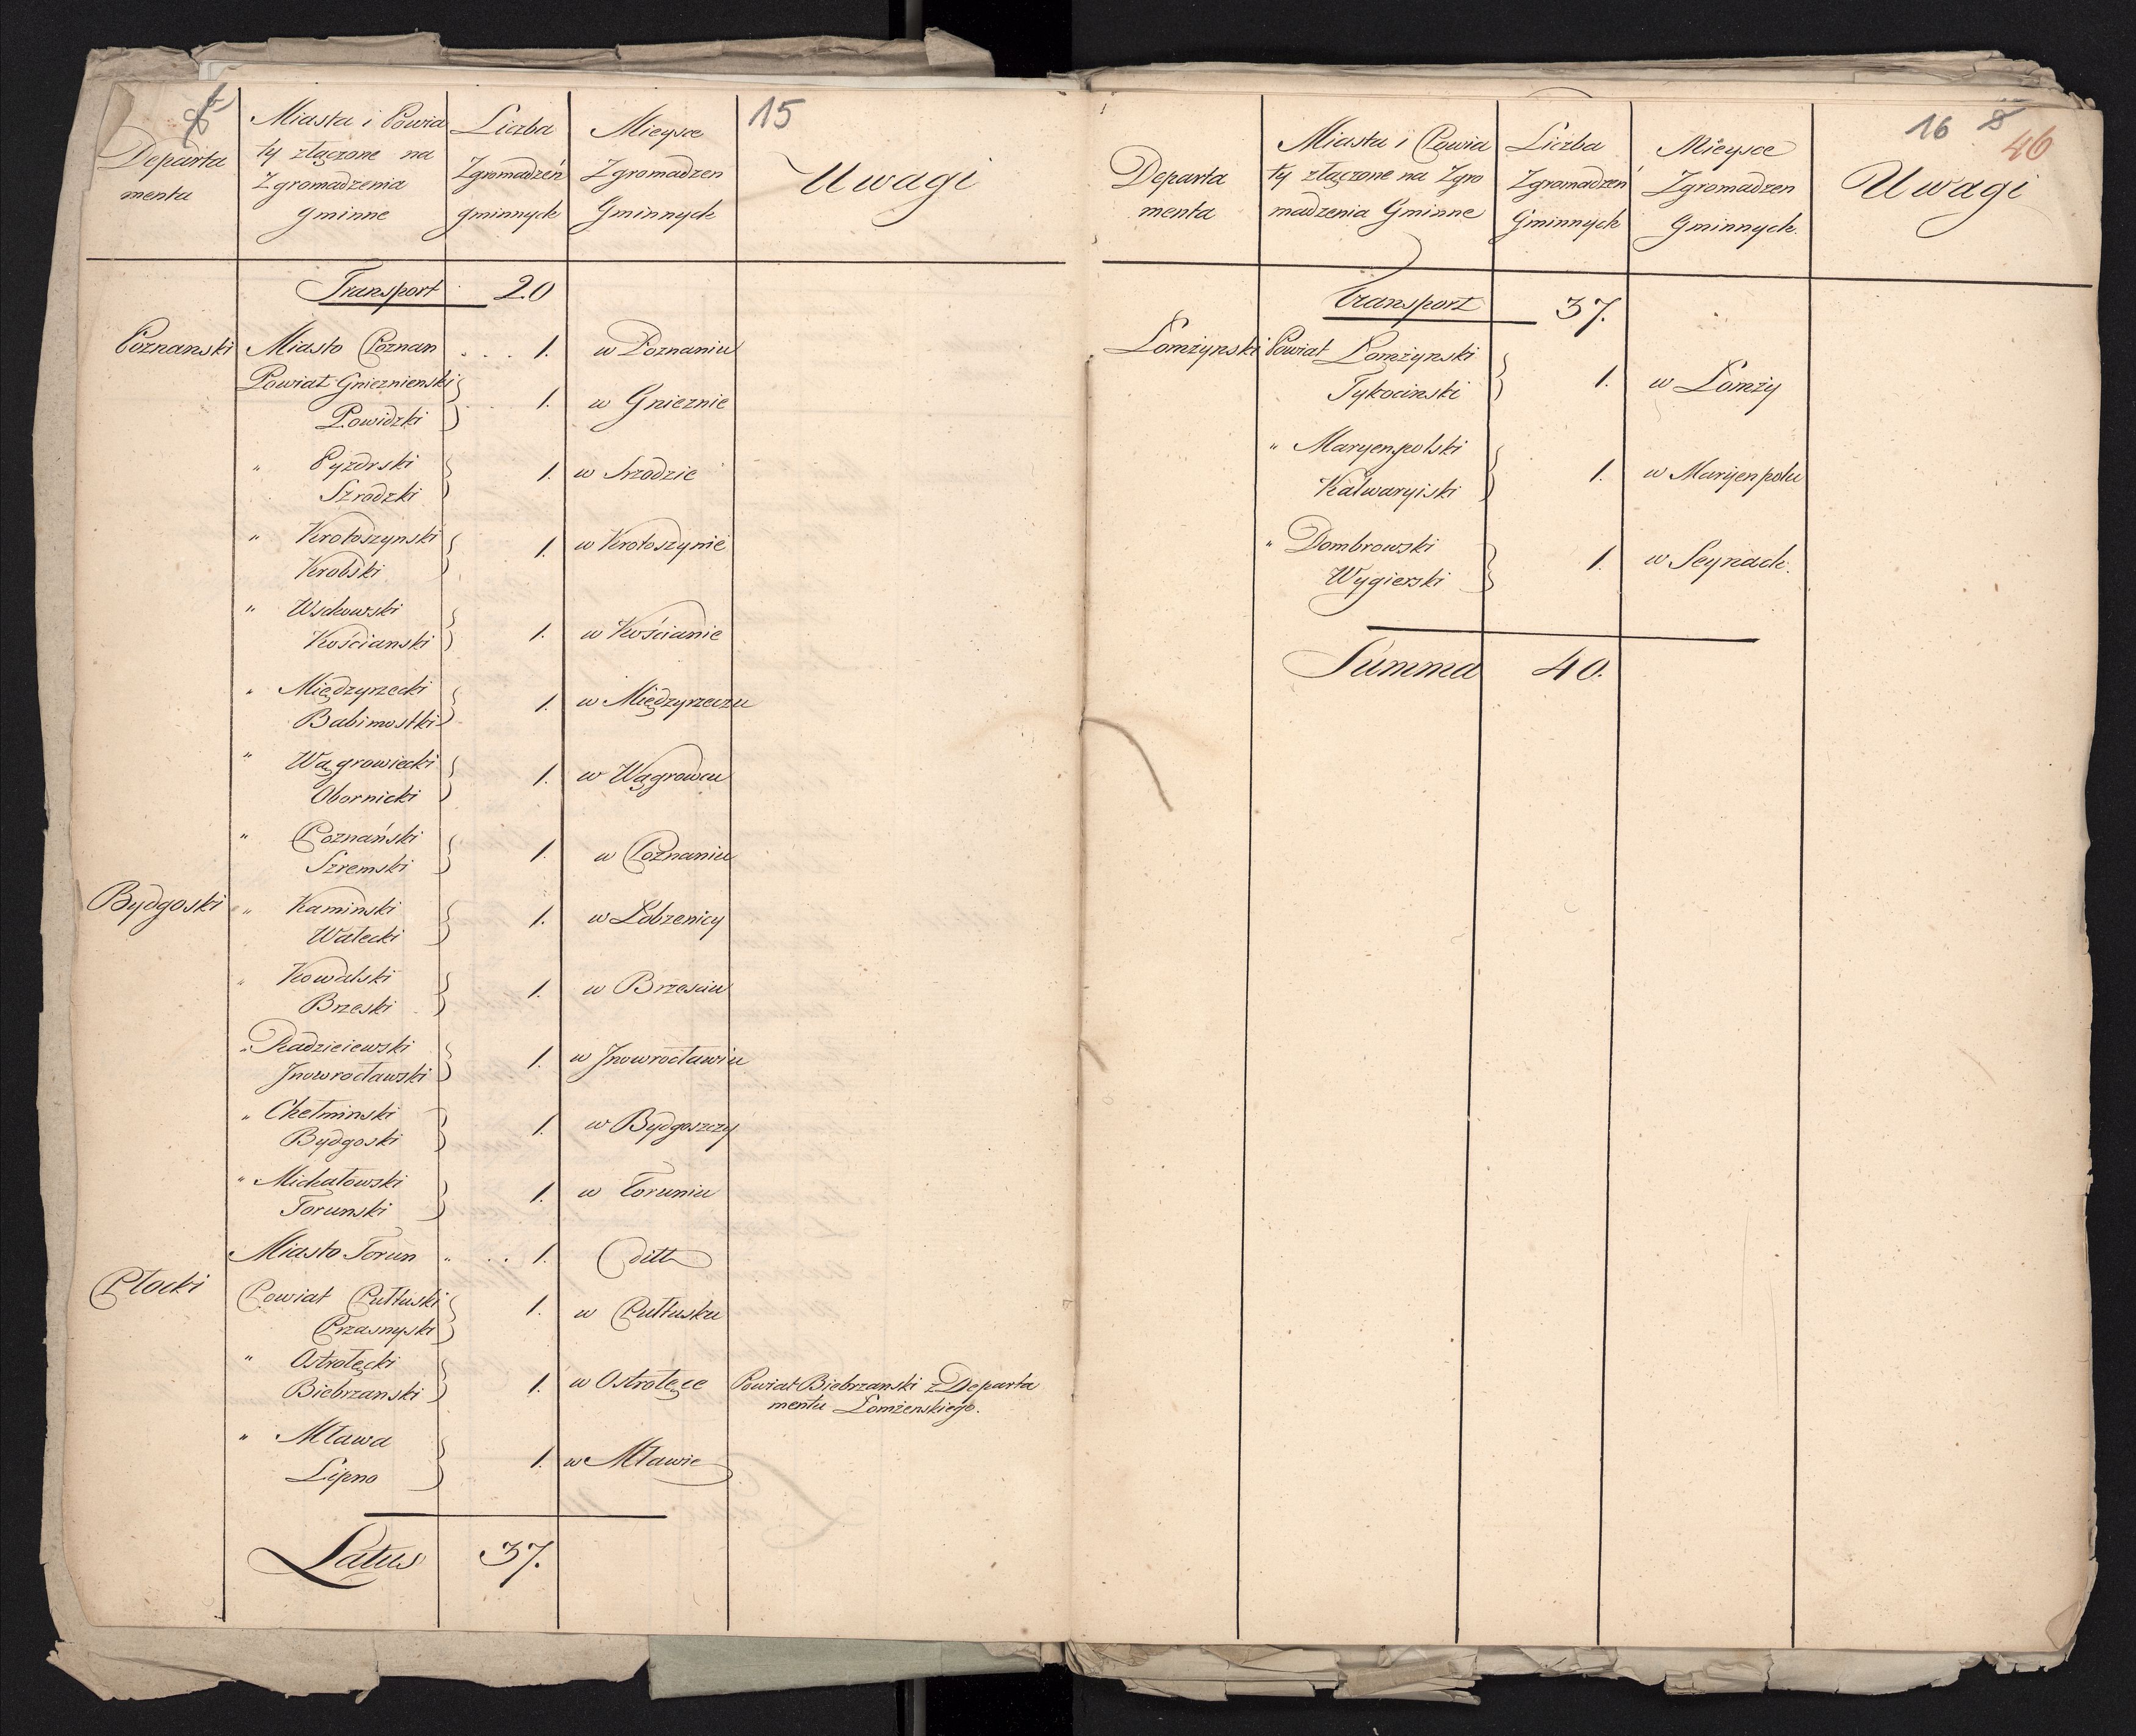 15
Departa
menta
Miasta i Powia
ty złączone na
Zgromadzenia
gminne
Liczba
Zgromadzeń
gminnych
Mieysce
Zgromadzen
Gminnych
Uwagi
Transport 20
Poznanski Miasto Poznan . . . 1. w Poznaniu
Powiat Gnieznienski
Powidzki 1. w Gnieznie
" Pyzdrski
Szrodzki 1. w Srzodzie
" Krotoszynski
Krobski 1. w Krotoszynie
" Wschowski
Kościanski 1. w Kościanie
" Międzyrzecki
Babimostki 1. w Międzyrzeczu
" Wągrowiecki
Obornicki 1. w Wągrowcu
" Poznański
Szremski 1. w Poznaniu
Bydgoski " Kaminski
Wałecki 1. w Łobzenicy
" Kowalski
Brzeski 1. w Brzesciu
" Radzieiewski
Jnowrocławski 1. w Jnowrocławiu
" Chełminski
Bydgoski 1. w Bydgoszczy
" Michałowski
Torunski 1. w Toruniu
Miasto Torun " . . 1. ditto
Płocki Powiat Pułtuski
Przasnyski 1. w Pułtusku
" Ostrołęcki
Biebrzanski 1. w Ostrołęce Powiat Biebrzanski z Departa
mentu Łomżenskiego.
" Mława
Lipno 1. w Mławie
Latus 37.
16 8
46
Departa
menta
Miasta i Powia
ty złączone na Zgro
madzenia Gminne
Liczba
Zgromadzeń
Gminnych
Mieysce
Zgromadzen
Gminnych.
Uwagi
Transport 37.
Łomżynski Powiat Łomżynski
Tykocinski 1. w Łomży
" Maryenpolski
Kalwaryiski 1. w Maryenpolu
" Dombrowski
Wygierski 1. w Seynach.
Summa 40.